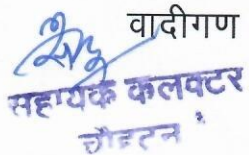 वादीगण
सहायक कलक्टर
चौहटन